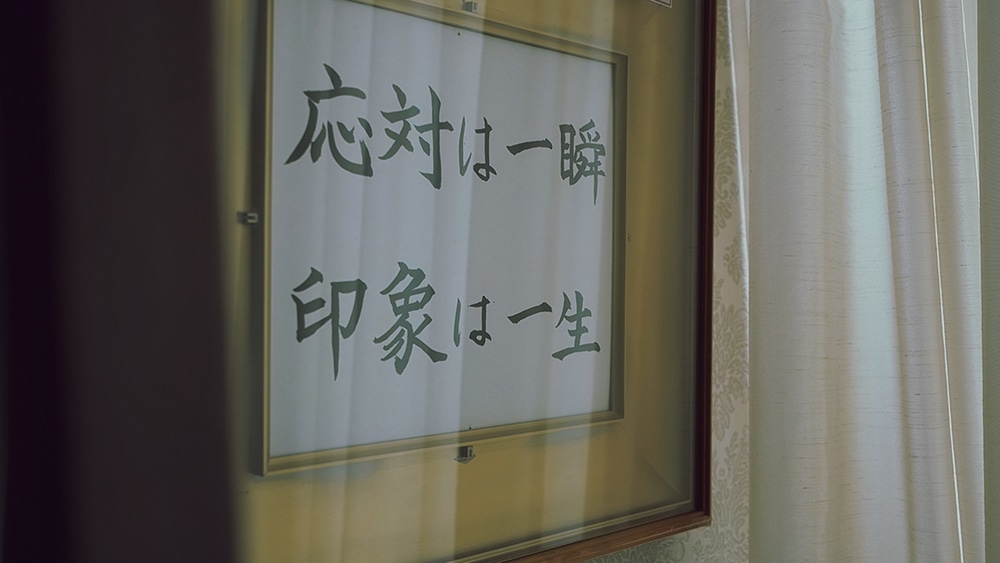 応対は一瞬
印象は一生